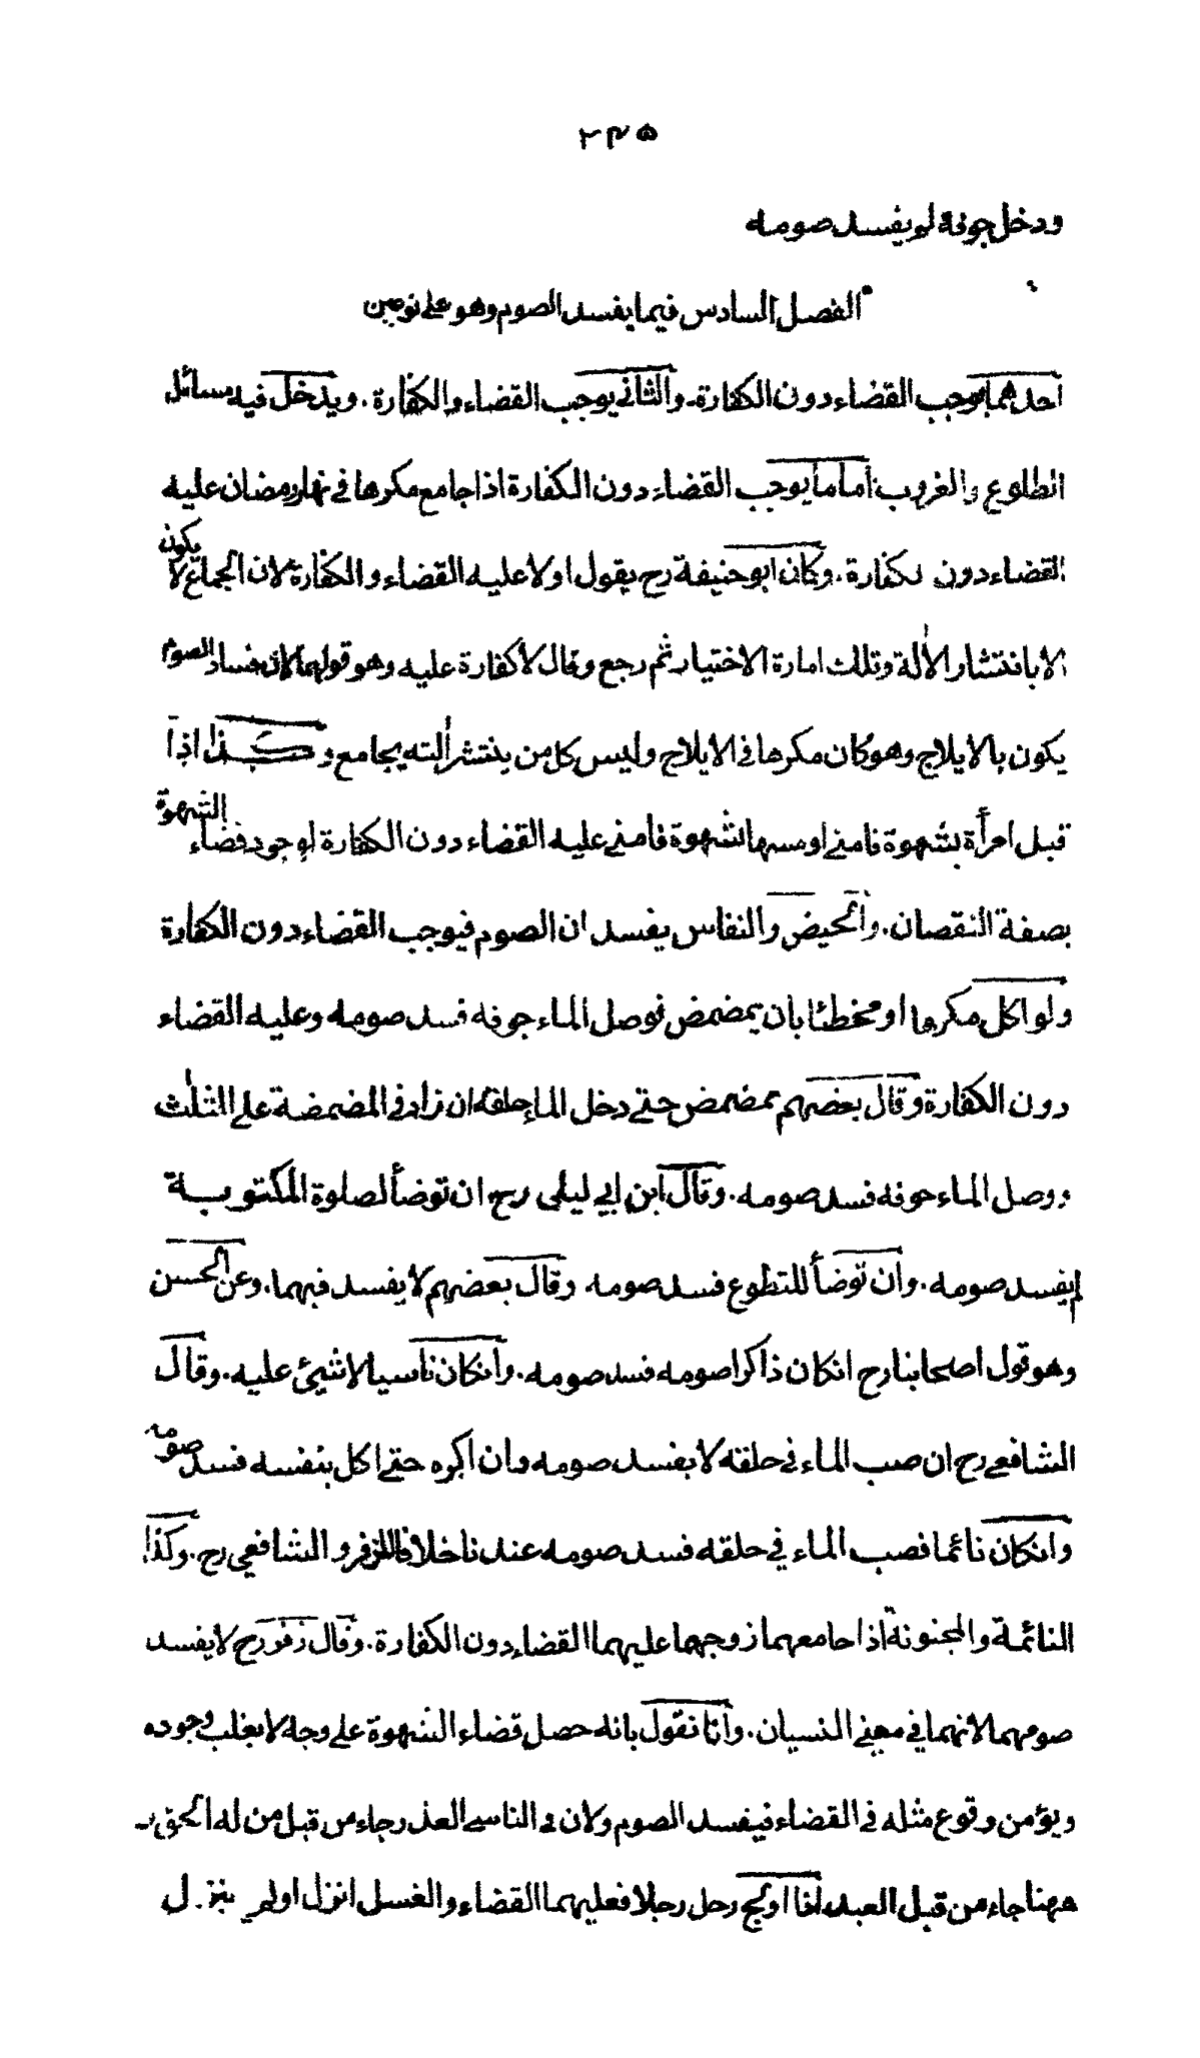 ٢٣٥
ودخل جوفه لم يفسد صومه
الفصل السادس فيما يفسد الصوم وهو على نوعين
احدهما يوجب القضاء دون الكفارة. والثاني يوجب القضاء والكفارة. ويدخل فيه مسائل
الطلوع والغروب اما ما يوجب القضاء دون الكفارة اذا جامع مكرها في نهار رمضان عليه
القضاء دون لكفارة. وكان ابو حنيفة رح يقول اولا عليه القضاء والكفارة لان الجماع لا يكون
الا بانتشار الألة وتلك امارة الاختيار ثم رجع وقال لا كفارة عليه وهو قولهما لان فساد الصوم
يكون بالايلاج وهو كان مكرها في الايلاج وليس كل من ينتشر ألته يجامع وكذا اذا
قبل امرأة بشهوة فامنى او مسها بشهوة فامنى عليه القضاء دون الكفارة لوجود قضاء الشهوة
بصفة النقصان. والحيض والنفاس يفسد ان الصوم فيوجب القضاء دون الكفارة
ولو اكل مكرها او مخطئا بان يمضمض فوصل الماء جوفه فسد صومه وعليه القضاء
دون الكفارة وقال بعضهم تمضمض حتى دخل الماء حلقه ان زاد في المضمضة على الثلث
ووصل الماء جوفه فسد صومه. وقال ابن ابي ليلى رح ان توضأ لصلوة المكتوبة
لم يفسد صومه. وان توضأ للتطوع فسد صومه وقال بعضهم لا يفسد فيهما. وعن الحسن
وهو قول اصحابنا رح انكان ذاكرا صومه فسد صومه. وانكان ناسيا لا شيئ عليه. وقال
الشافعي رح ان صب الماء في حلقه لا يفسد صومه وان اكره حتى اكل بنفسه فسد صومه
وانكان نائما فصب الماء في حلقه فسد صومه عندنا خلافا لزفر والشافعي رح. وكذا
النائمة والمجنونة اذا جامعهما زوجهما عليهما القضاء دون الكفارة. وقال زفر رح لا يفسد
صومهما لانهما في معنى النسيان. وانا نقول بانه حصل قضاء الشهوة على وجه لا يغلب وجوده
ويؤمن وقوع مثله في القضاء فيفسد الصوم ولان في الناسي العذر جاء من قبل من له الحق و
ههنا جاء من قبل العبد اذا اولج رجل رجلا فعليهما القضاء والغسل انزل اولم ينزل